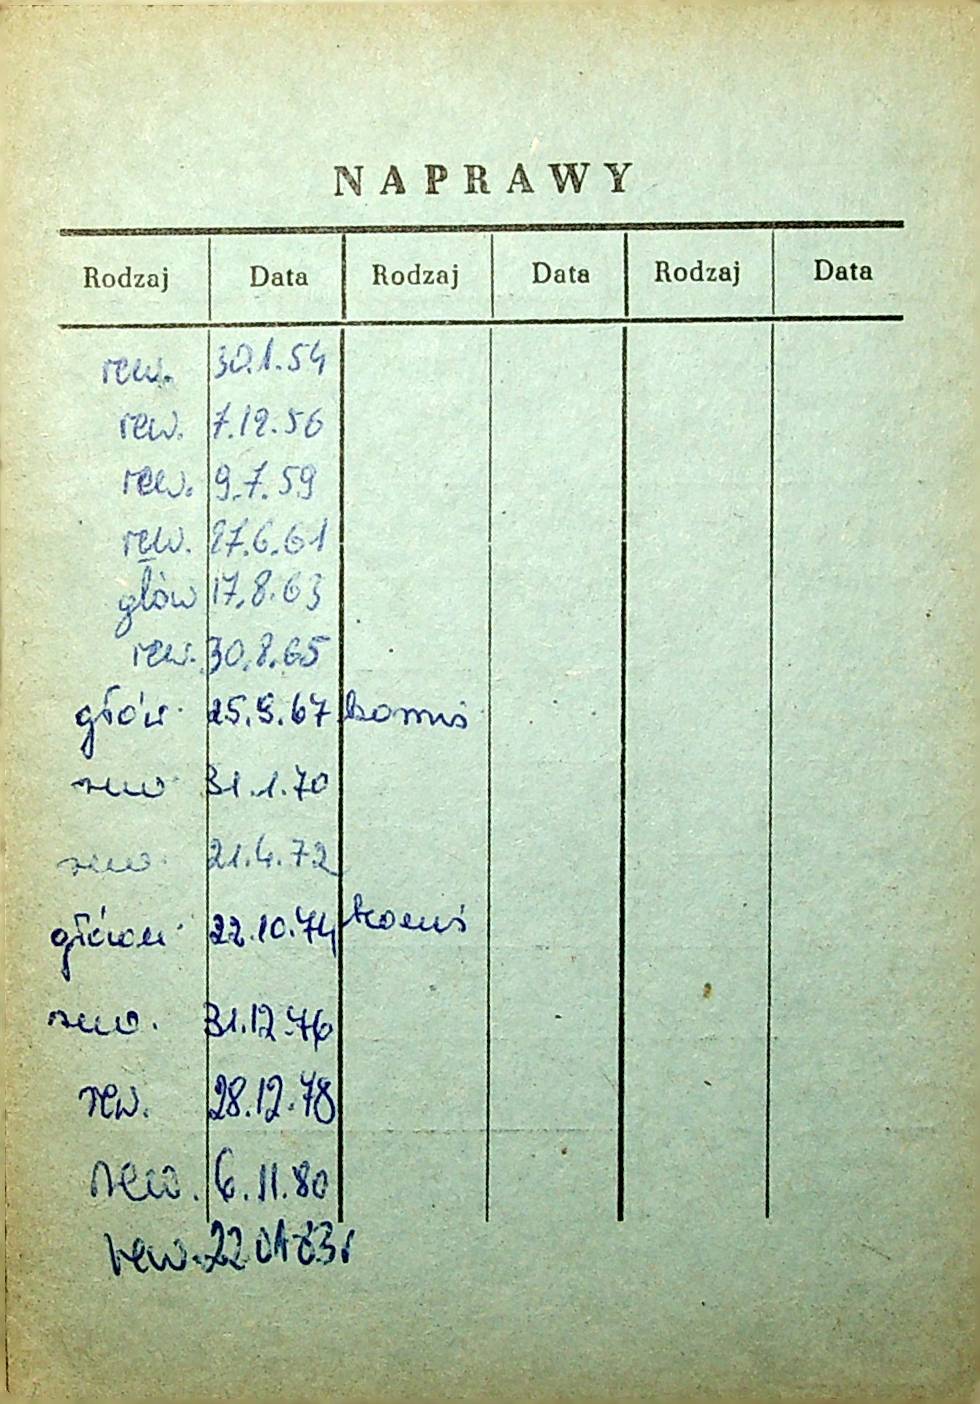 NAPRAWY
Rodzaj Data Rodzaj Data Rodzaj Data
rew. 30.1.54
rew. 7.12.56
rew. 9.7.59
rew. 27.6.61
głów 17.8.63
rew. 30.8.65
głów 25.9.67
rew 31.1.70
rew. 21.4.72
główn 22.10.74
rew. 31.12.76
rew. 28.12.78
rew. 6.11.80
rew. 22 01 83r